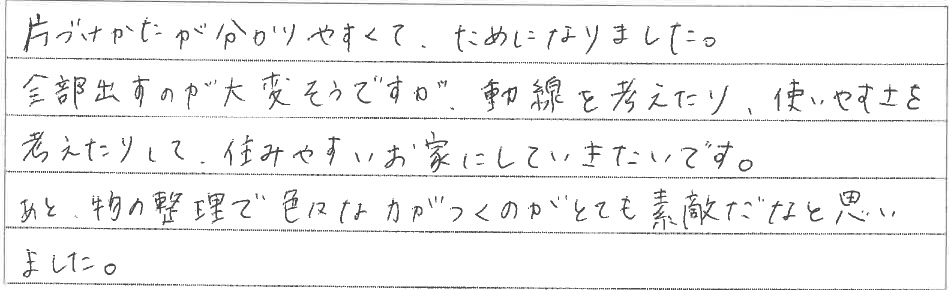 片づけかたが分かりやすくて、ためになりました。
全部出すのが大変そうですが、動線を考えたり、使いやすさを
考えたりして、住みやすいお家にしていきたいです。
あと、物の整理で色々な力がつくのがとても素敵だなと思い
ました。